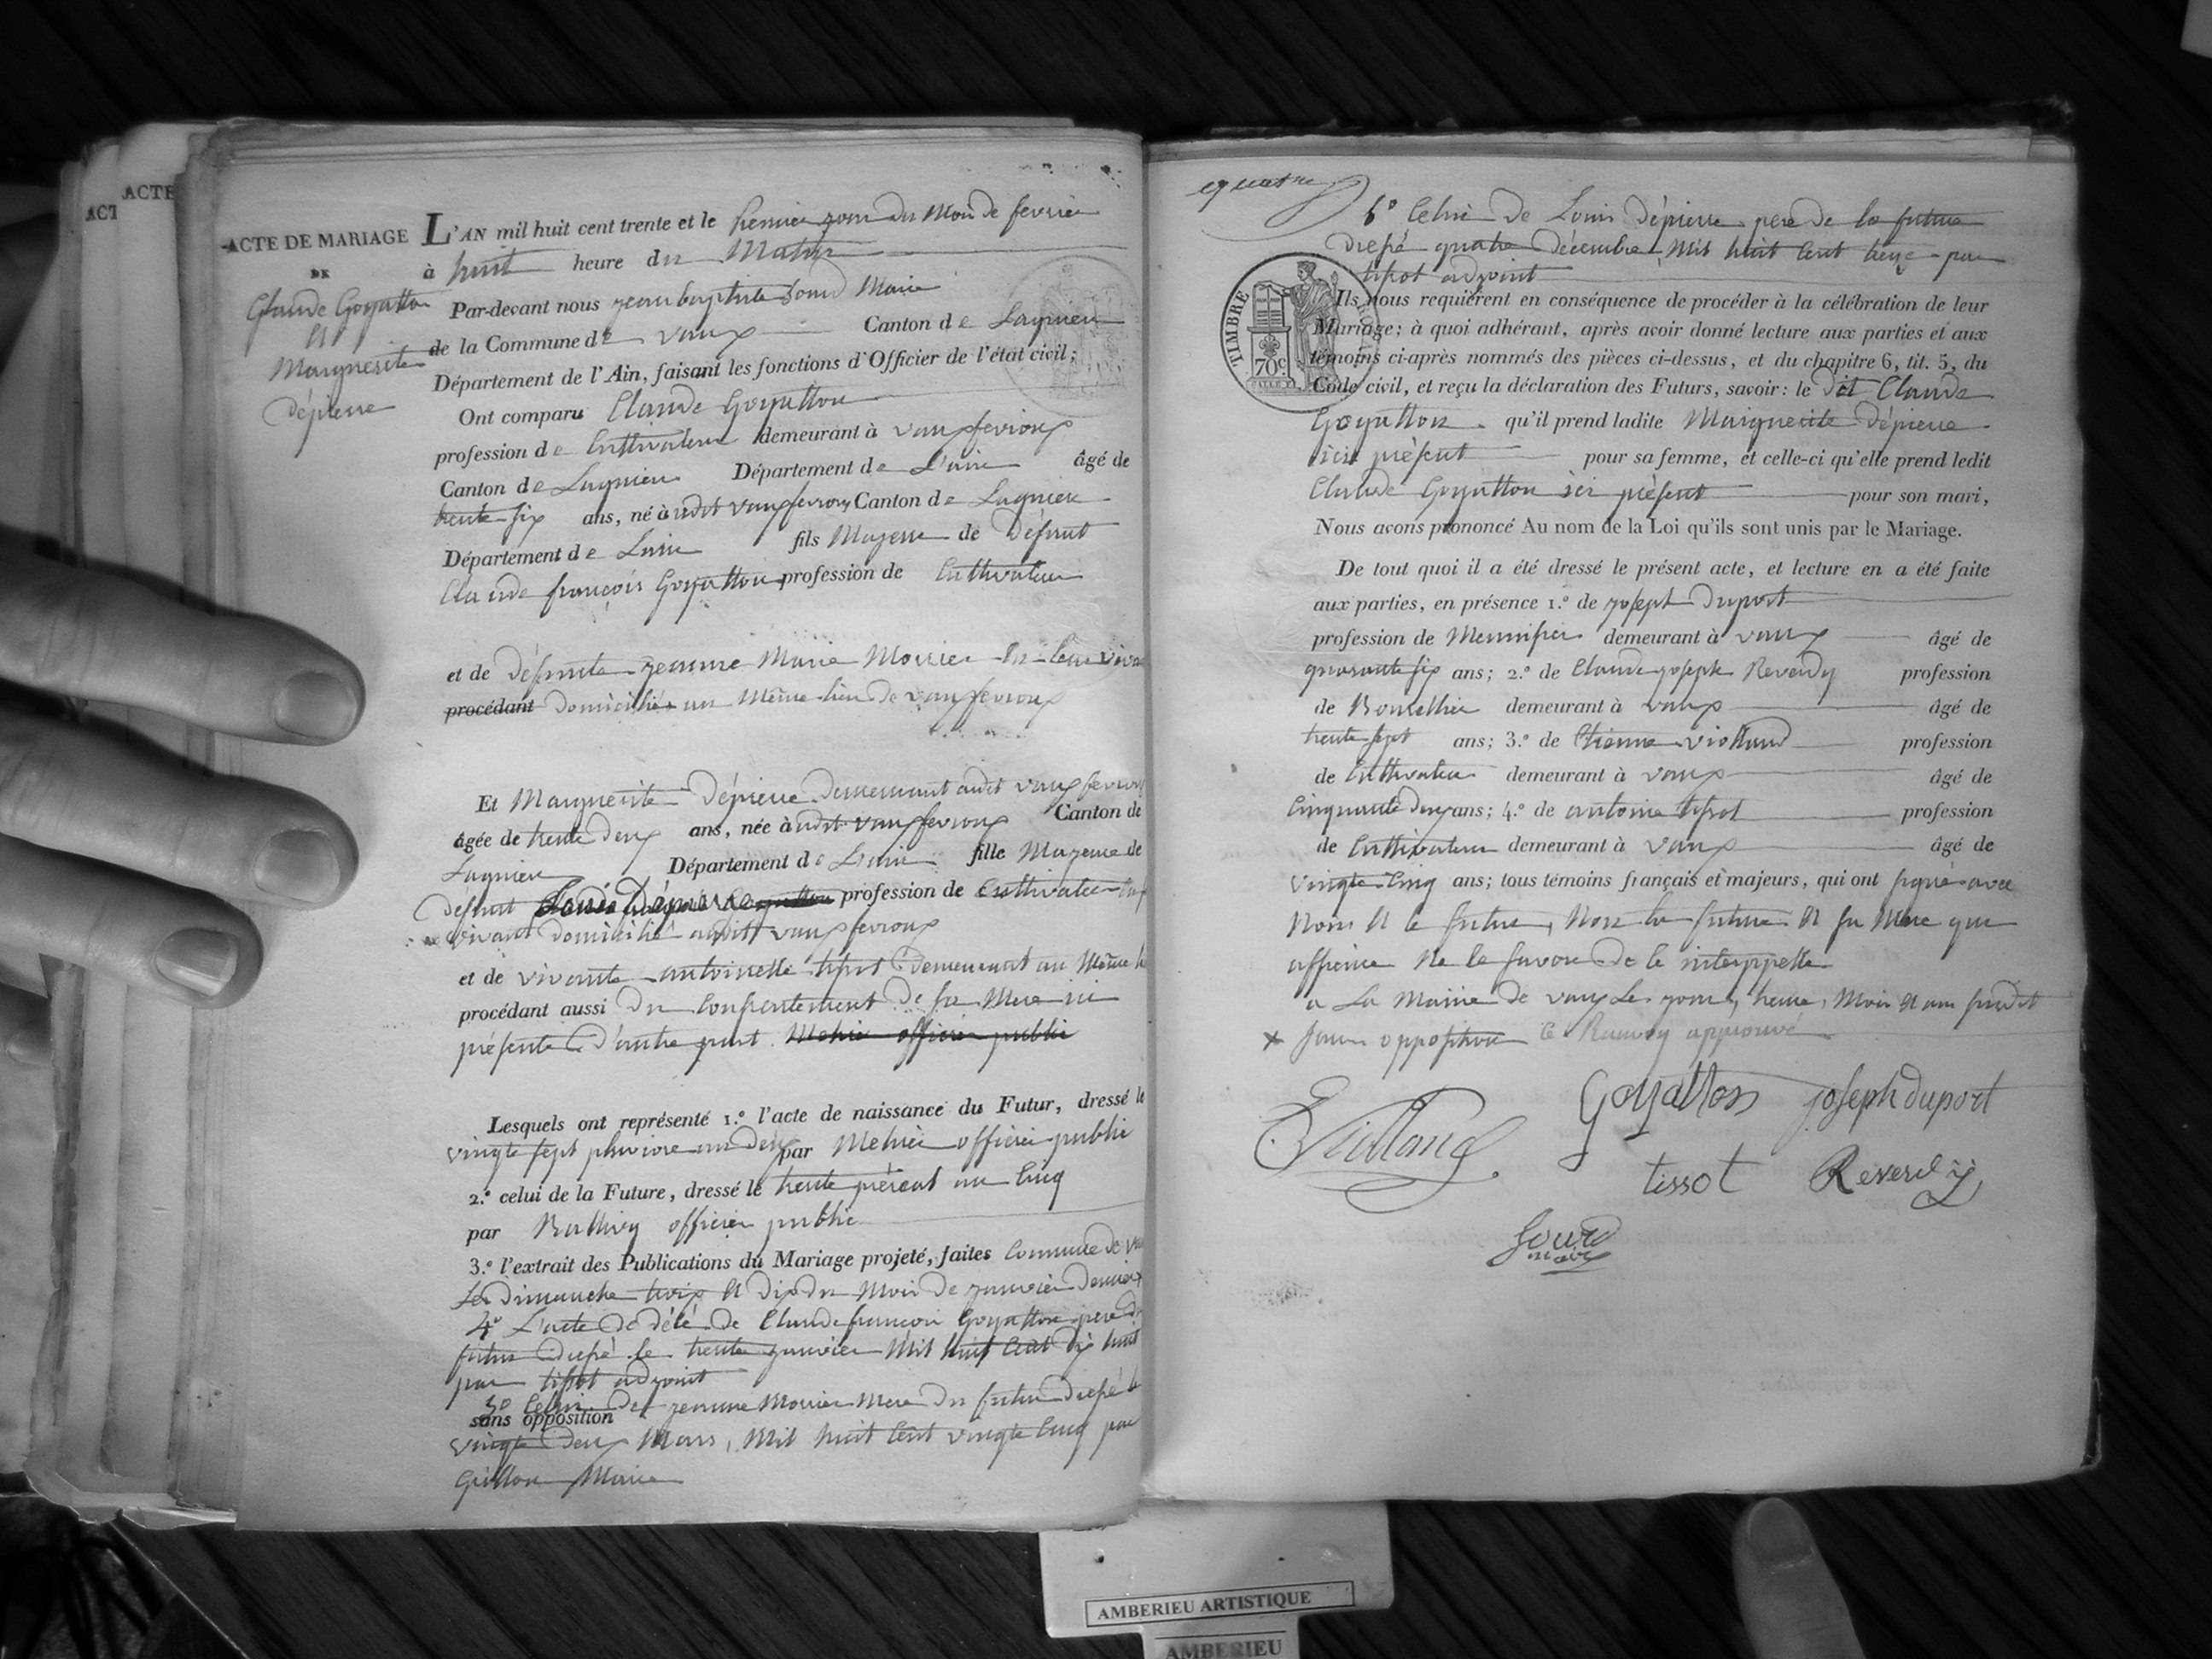 ACTE
ACT
ACTE DE MARIAGE
DE
Claude Goyatton
et
Marguerite
Dépierre
L'AN mil huit cent trente et le premier jour du Mois de fevrier
à huit heure du Matin
Par-devant nous jean baptiste Sourd Maire
de la Commune de vaux Canton de Lagnieu
Département de l'Ain, faisant les fonctions d'Officier de l'état civil;
Ont comparu Claude Goyatton
profession de Cultivateur demeurant à vauxfevroux
Canton de Lagnieu Département de L'ain âgé de
trente six ans, né à udit vauxfevroux Canton de Lagnieu
Département de Lain fils Majeur de Défunt
Claude françois Goyatton profession de Cultivateur
et de défunte jeanne Marie Monier
procédant domiciliés au Même lieu de vauxfevroux
Et Marguerite Dépierre demeurant audit vauxfevroux
âgée de trente deux ans, née à udit vauxfevroux Canton de
Lagnieu Département de Lain fille Majeure de
défunt Louis Dépierre profession de Cultivateur
vivant domicilié audit vauxfevroux
et de vivante antoinette tissot demeurant au Même
procédant aussi du Consentement de sa Mere ici
présente d'autre part. officier public
Lesquels ont représenté 1.º l'acte de naissance du Futur, dressé le
vingt sept pluviose an deux par officier public
2.º celui de la Future, dressé le trente préréal an Cinq
par officier public
3.º l'extrait des Publications du Mariage projeté, faites Commune de
Les dimanche trois et dix du Mois de janvier dernier
4º L'acte de décé de Claude françois Goyatton pere du
futur dressé le trente janvier Mil huit Cent dix huit
par tissot adjoint
5º Celui de jeanne Monier Mere du futur dressé le
sans opposition
vingt deux Mars, Mil huit Cent vingt Cinq par
Grillon Maire
quatre
6º Celui de Louis Dépierre pere de la future
dressé quatre décembre Mil huit Cent treize par
tissot adjoint
TIMBRE
70c
Ils nous requièrent en conséquence de procéder à la célébration de leur
Mariage; à quoi adhérant, après avoir donné lecture aux parties et aux
témoins ci-après nommés des pièces ci-dessus, et du chapitre 6, tit. 5, du
Code civil, et reçu la déclaration des Futurs, savoir: le dit Claude
Goyatton qu'il prend ladite Marguerite Dépierre
ici présent pour sa femme, et celle-ci qu'elle prend ledit
Claude Goyatton ici présent pour son mari,
Nous avons prononcé Au nom de la Loi qu'ils sont unis par le Mariage.
De tout quoi il a été dressé le présent acte, et lecture en a été faite
aux parties, en présence 1.º de joseph Duport
profession de Mennisier demeurant à vaux âgé de
quarante six ans; 2.º de Claude joseph Reverdy profession
de Bourellier demeurant à vaux âgé de
trente sept ans; 3.º de Etienne violland profession
de Cultivateur demeurant à vaux âgé de
Cinquante deux ans; 4.º de antoine tissot profession
de Cultivateur demeurant à vaux âgé de
vingt Cinq ans; tous témoins français et majeurs, qui ont signé avec
Nous et le futur, Non la future et sa Mere que
affirme Ne le savoir de le interppelle
a La Mairie de vaux Les jour, heure, Mois et an susdit
x sans opposition le Renvoy approuvé
Violland
Goyatton joseph duport
tissot Reverdy
Sourd
maire
AMBERIEU ARTISTIQUE
AMBERIEU